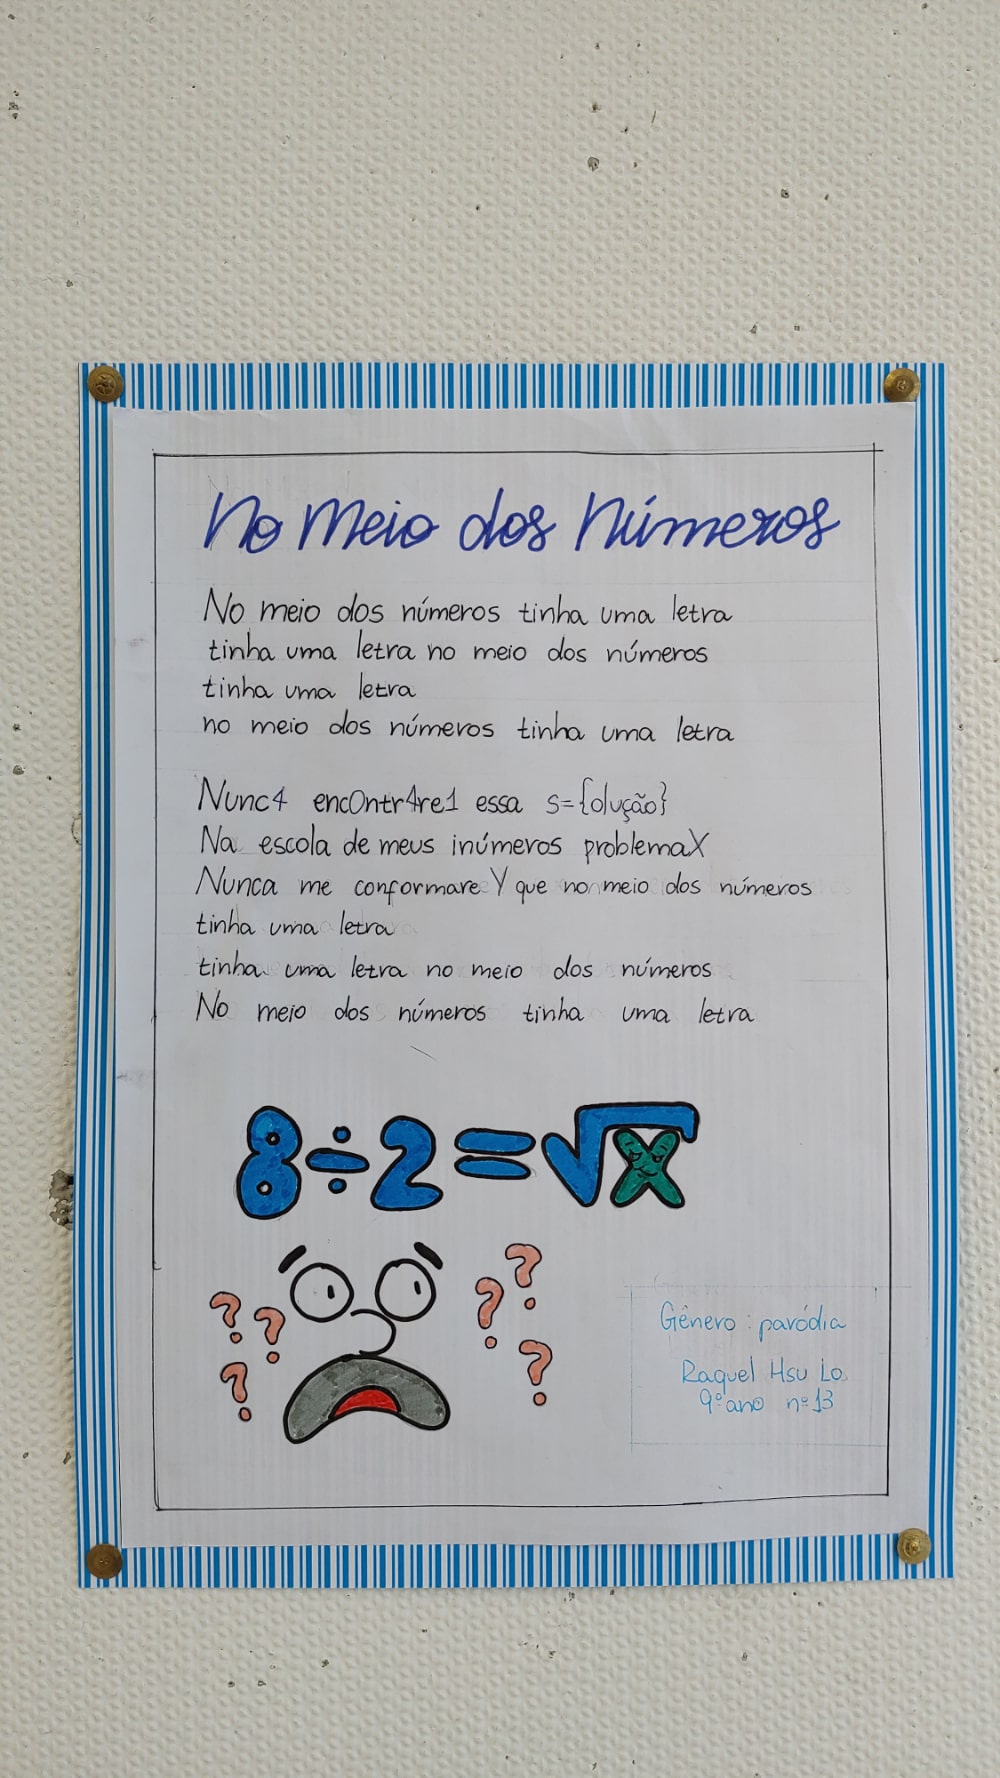 No meio dos números
No meio dos números tinha uma letra
tinha uma letra no meio dos números
tinha uma letra
no meio dos números tinha uma letra
Nunc4 enc0ntr4re1 essa s={olução}
Na escola de meus inúmeros problemaX
Nunca me conformareY que no meio dos números
tinha uma letra
tinha uma letra no meio dos números
No meio dos números tinha uma letra
8÷2=√x
? ? ? ? ? ?
Gênero: paródia
Raquel Hsu Lo
9º ano nº 13